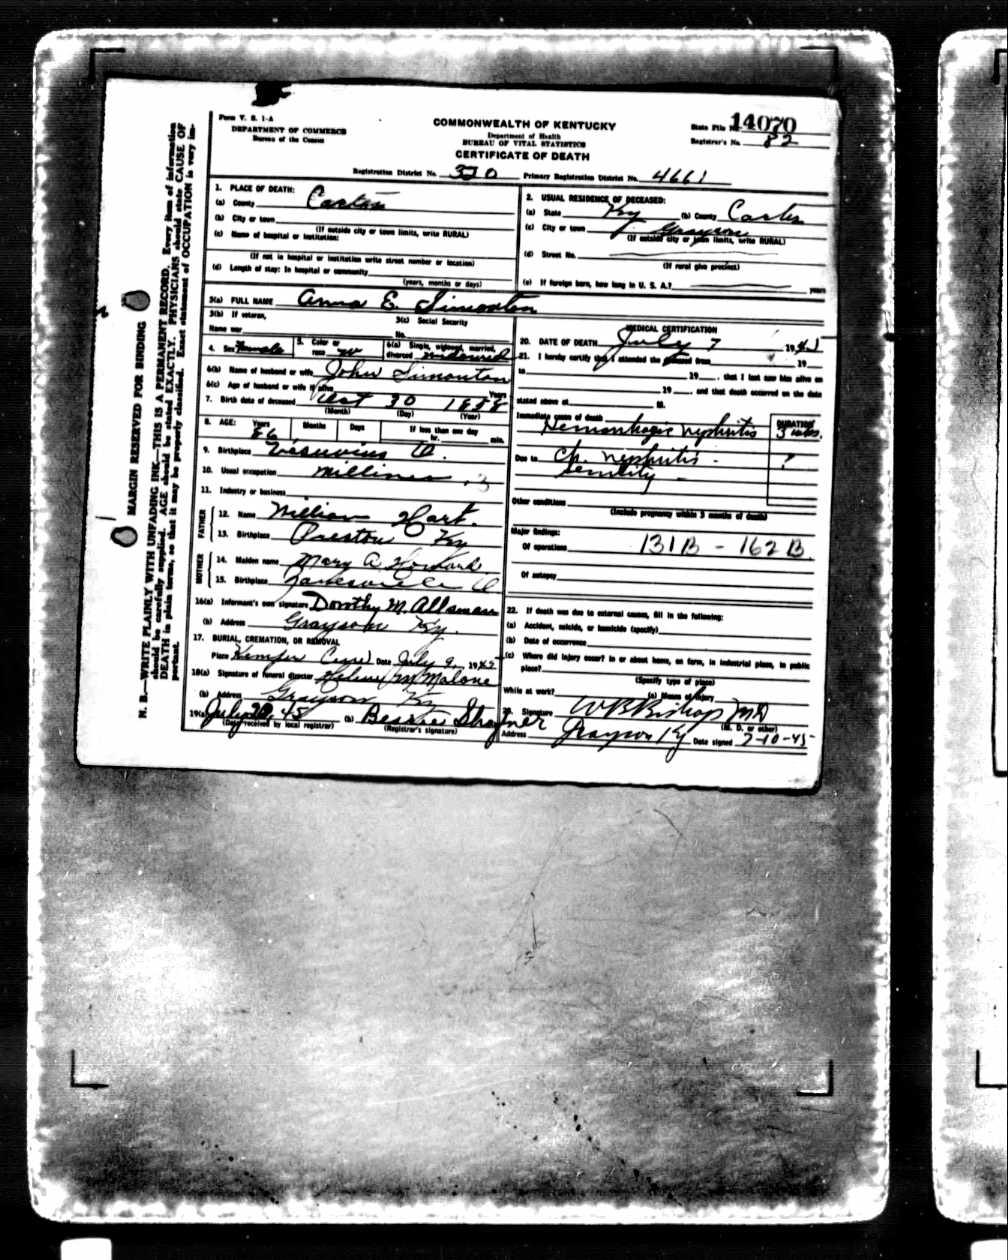 Form V. S. 1-A
DEPARTMENT OF COMMERCE
Bureau of the Census
COMMONWEALTH OF KENTUCKY
Department of Health
BUREAU OF VITAL STATISTICS
CERTIFICATE OF DEATH
State File No. 14070
Registrar's No. 82
Registration District No. 320 Primary Registration District No. 4661
1. PLACE OF DEATH:
(a) County Carter
(b) City or town
(If outside city or town limits, write RURAL)
(c) Name of hospital or institution:
(If not in hospital or institution write street number or location)
(d) Length of stay: In hospital or community
(years, months or days)
2. USUAL RESIDENCE OF DECEASED:
(a) State Ky (b) County Carter
(c) City or town Grayson
(If outside city or town limits, write RURAL)
(d) Street No.
(If rural give precinct)
(e) If foreign born, how long in U. S. A.? years
3(a) FULL NAME Anna E. Simonton
3(b) If veteran,
Name war
3(c) Social Security
No.
4. Sex Female 5. Color or race W 6(a) Single, widowed, married, divorced widowed
6(b) Name of husband or wife John Simonton
6(c) Age of husband or wife if alive Years
7. Birth date of deceased Oct 30 1858
(Month) (Day) (Year)
8. AGE: Years 86 Months Days If less than one day hr. min.
9. Birthplace Vesuvius O.
10. Usual occupation Milliner
11. Industry or business
FATHER
12. Name William Hart.
13. Birthplace Preston Ky
MOTHER
14. Maiden name Mary A.
15. Birthplace
16(a) Informant's own signature Dorothy M. Allaman
(b) Address Grayson Ky.
17. BURIAL, CREMATION, OR REMOVAL
Place Date July 9, 19
18(a) Signature of funeral director Malone
(b) Address Grayson Ky
19(a) July 45 (b) Bessie
(Date received by local registrar) (Registrar's signature)
MEDICAL CERTIFICATION
20. DATE OF DEATH July 7 19
21. I hereby certify that I attended the deceased from 19
to 19 , that I last saw him alive on
19 , and that death occurred on the date
stated above at M.
Immediate cause of death DURATION
Hemorrhagic nephritis 3
Due to Ch. nephritis - ?
Senility -
Other conditions
(Include pregnancy within 3 months of death)
Major findings:
Of operations 131B - 162B
Of autopsy
22. If death was due to external causes, fill in the following:
(a) Accident, suicide, or homicide (specify)
(b) Date of occurrence
(c) Where did injury occur? In or about home, on farm, in industrial place, in public
place?
(Specify type of place)
While at work? (e) Means of injury
23. Signature W B Bishop MD
(M. D. or other)
Address Grayson Ky Date signed 7-10-45
MARGIN RESERVED FOR BINDING
N. B.—WRITE PLAINLY WITH UNFADING INK—THIS IS A PERMANENT RECORD. Every item of information
should be carefully supplied. AGE should be stated EXACTLY. PHYSICIANS should state CAUSE OF
DEATH in plain terms, so that it may be properly classified. Exact statement of OCCUPATION is very im-
portant.